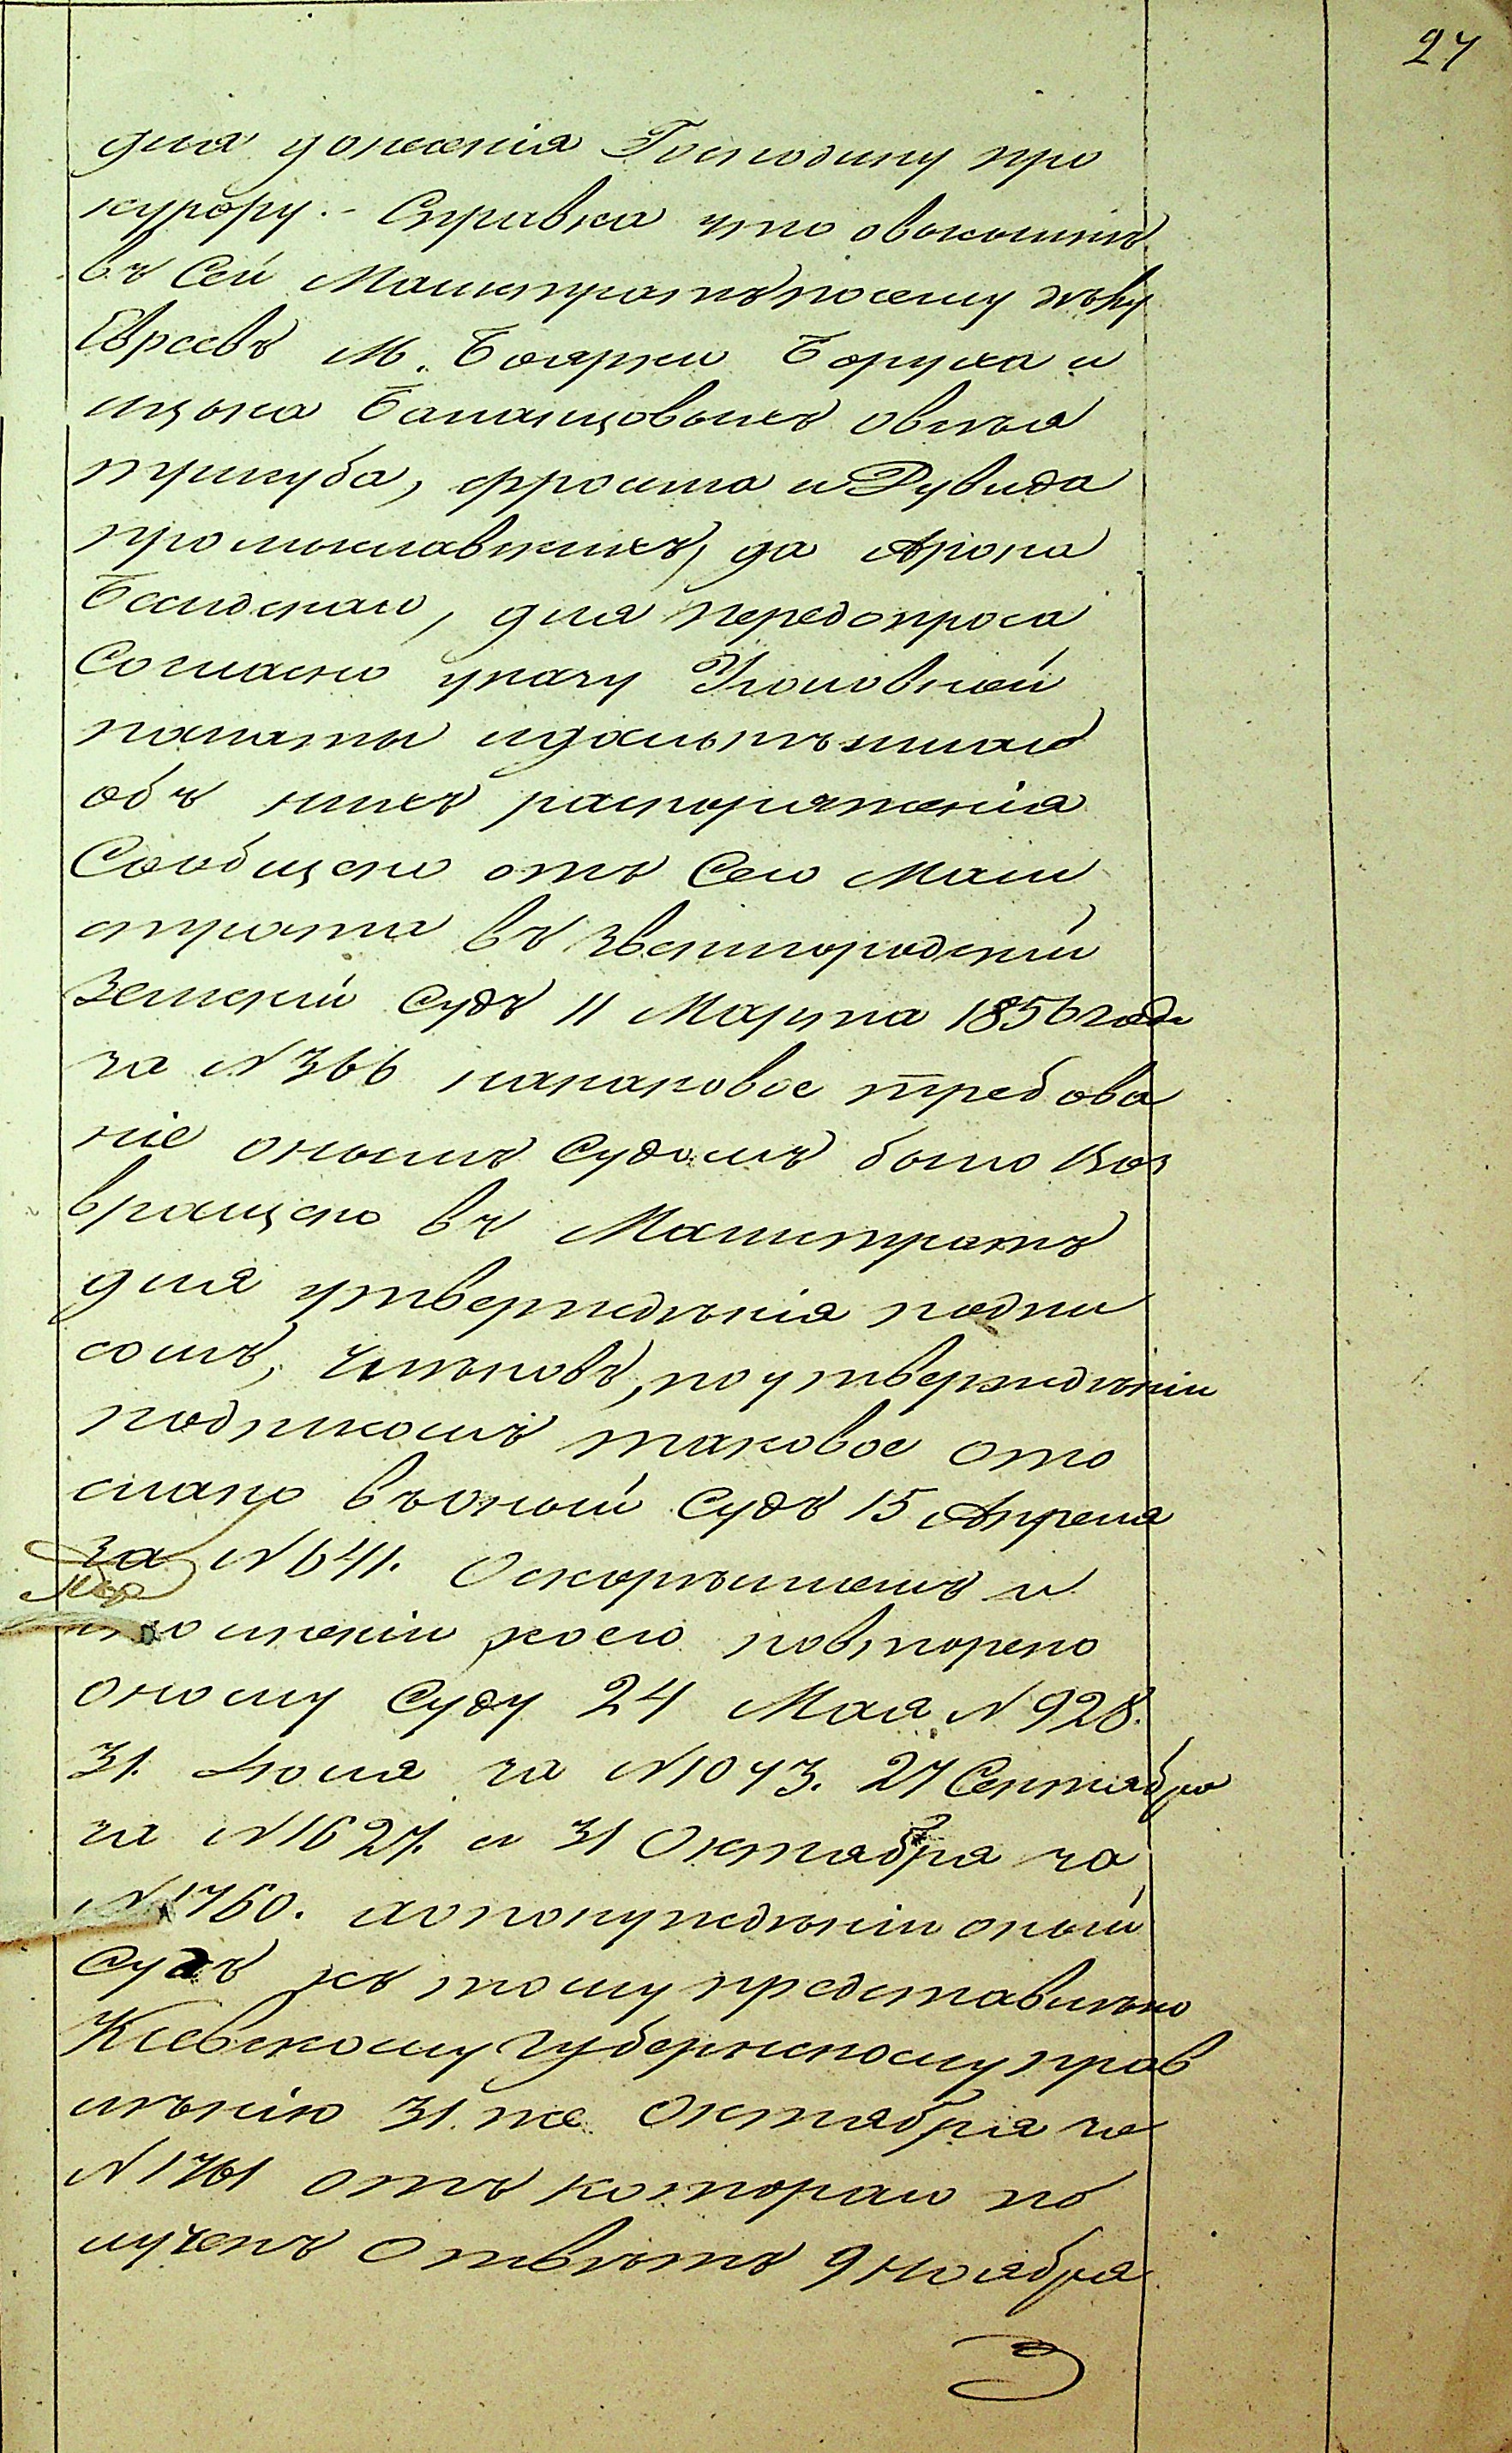 27
для донесенія Господину про
курору. - Справка что овысылкѣ
въ Сей Магистратъ посему дѣлу
Евреевъ М. Боярки Боруха и
ицька Баланцовыхъ овшѣя
трикуба, фроима и Рувида
промыславскихъ, да Арона
Беслидскаго, для передопроса
Согласно указу Уголовной
палаты идальнѣйшаго
объ нихъ распоряженія
Сообщено отъ Сего Маги
страта въ Звенигородскій
Земскій Судъ 11 Марта 1856 года
за N 366 какаковое требова
ніе онымъ Судомъ было Воз
вращено въ Магистратъ
для утвержденія подпи
сомъ, Членовъ, поутвержденіи
подписомъ таковое ото
слано въоный Судъ 15 Апреля
за N 641. Оскорѣйшемъ и
сполненіи коего повторено
оному Суду 24 Мая N 928.
31. Іюля за N 1073. 27 Сентября
за N 1627. и 31 Октября за
N 1760. аопонужденіи оный
Судъ къ тому представлѣно
Кіевскому Губернскому прав
лѣнію 31. же Октября за
N 1761 отъ котораго по
лученъ Отвѣтъ 9 ноября